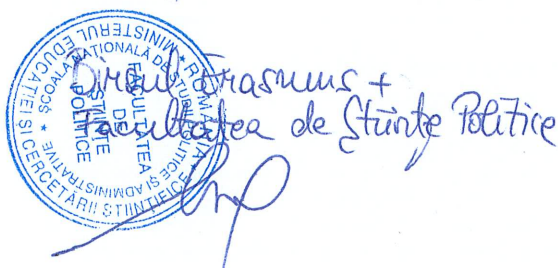 Biroul Erasmus +
Facultatea de Științe Politice
ROMÂNIA * MINISTERUL EDUCAȚIEI ȘI CERCETĂRII ȘTIINȚIFICE *
ȘCOALA NAȚIONALĂ DE STUDII POLITICE ȘI ADMINISTRATIVE *
FACULTATEA
DE
ȘTIINȚE
POLITICE